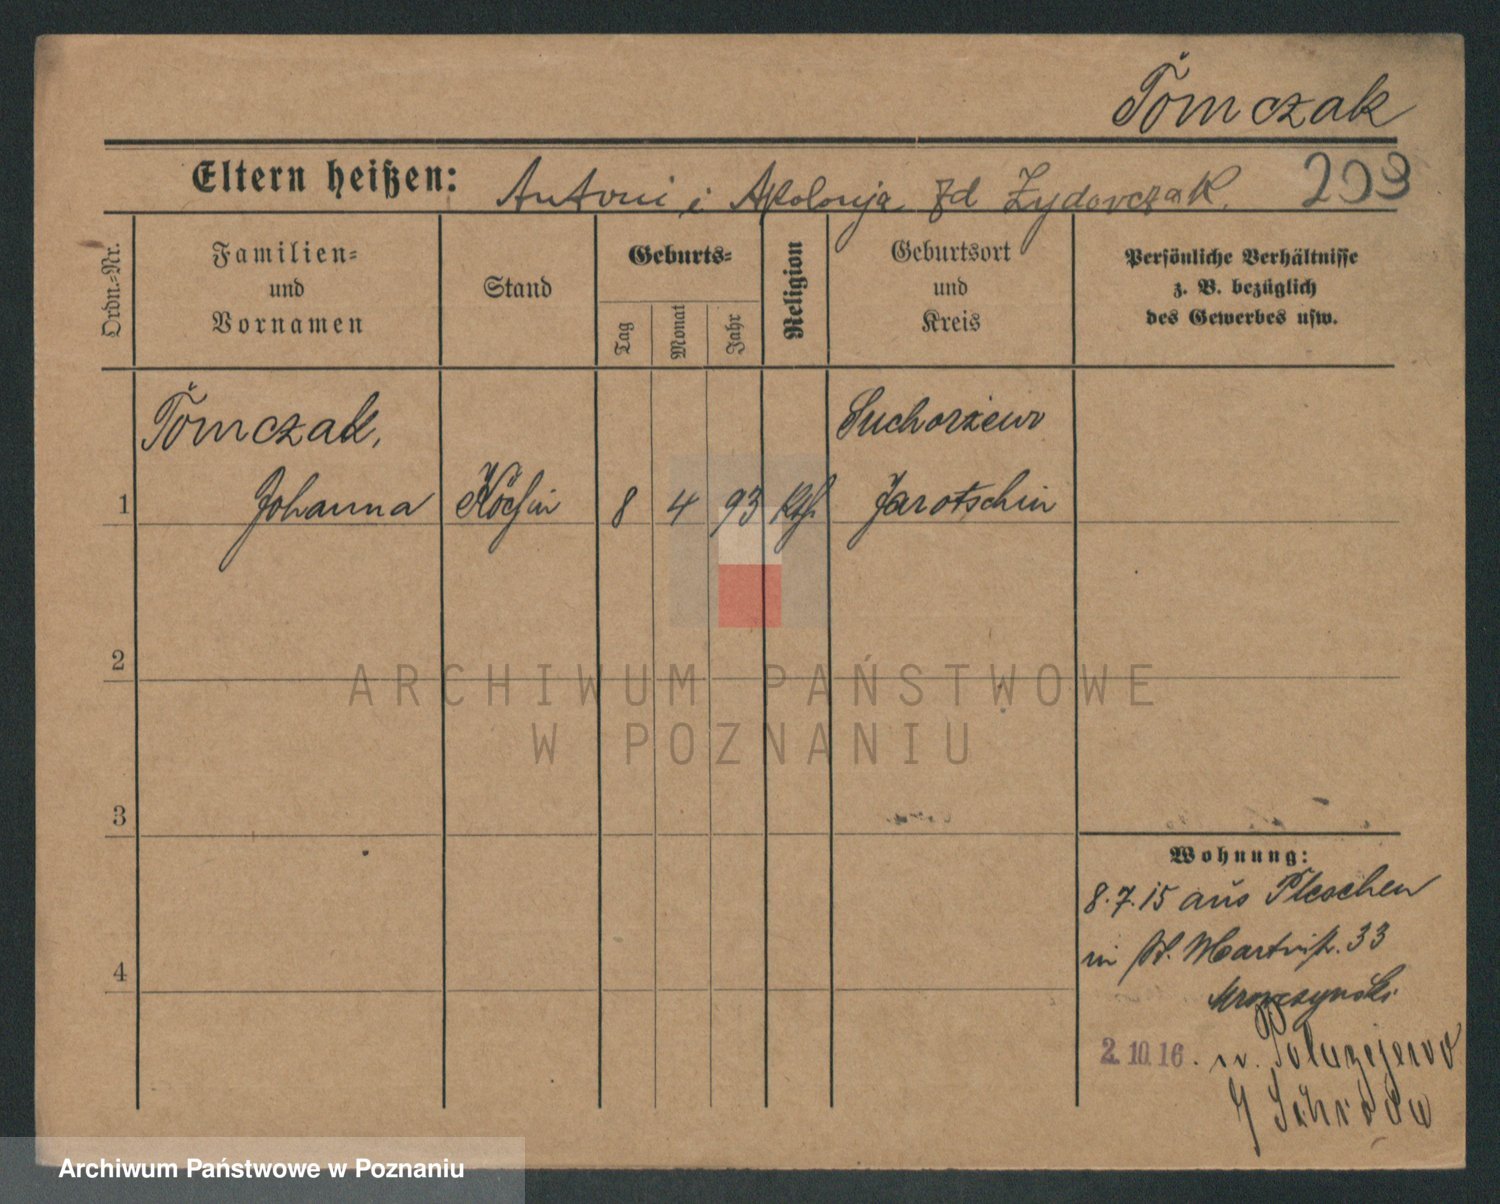 Tomczak
Eltern heißen: Antoni i Apolonja zd Zydorczak.
203
Ordn.-Nr.
Familien-
und
Vornamen
Stand
Geburts-
Tag
Monat
Jahr
Religion
Geburtsort
und
Kreis
Persönliche Verhältnisse
z. B. bezüglich
des Gewerbes usw.
Tomczak,
Sucharzewo
1 Johanna Köchin 8 4 93 Kth. Jarotschin
2
ARCHIWUM PAŃSTWOWE
W POZNANIU
3
4
Wohnung:
8.7.15 aus Pleschen
in St. Martinstr. 33
2.10.16. n.
Archiwum Państwowe w Poznaniu